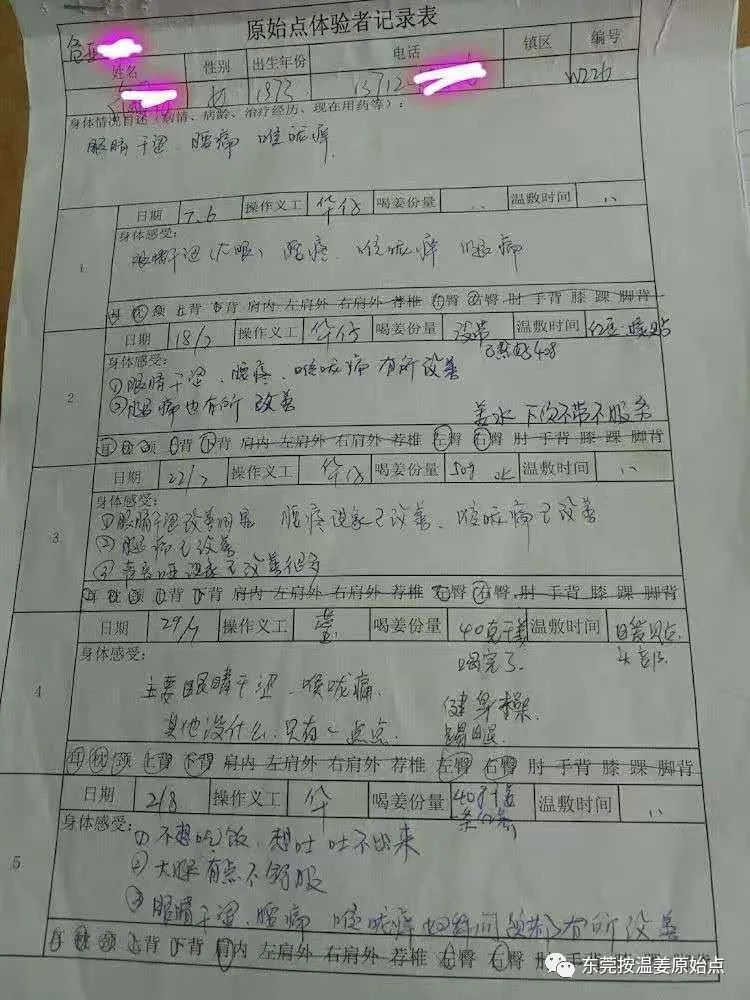 原始点体验者记录表
姓名 性别 出生年份 电话 镇区 编号
女 1973 13712 W226
身体情况自述（病情、病龄、治疗经历、现在用药等）：
眼睛干涩 腰痛 喉咙痒
1 日期 7.6 操作义工 华仔 喝姜份量 温敷时间
身体感受：
眼睛干涩 腰疼 喉咙痒 腿痛
耳 枕 颈 上背 下背 肩内 左肩外 右肩外 荐椎 左臀 右臀 肘 手背 膝 踝 脚背
2 日期 18/7 操作义工 华仔 喝姜份量 没带 温敷时间
身体感受：
①眼睛干涩、腰疼、喉咙痛有所改善
②腿痛也有所改善
姜水下次不带不服务
耳 枕 颈 上背 下背 肩内 左肩外 右肩外 荐椎 左臀 右臀 肘 手背 膝 踝 脚背
3 日期 22/7 操作义工 华仔 喝姜份量 50g 温敷时间
身体感受：
①眼睛干涩改善明显 腰疼说已改善、喉咙痛已改善
②腿痛已改善
③声音哑 已改善很多
耳 枕 颈 上背 下背 肩内 左肩外 右肩外 荐椎 左臀 右臀 肘 手背 膝 踝 脚背
4 日期 29/7 操作义工 莹 喝姜份量 40克干姜 温敷时间
喝完了
身体感受：
主要眼睛干涩、喉咙痛、
健身操
其他没什么、只有一点点
耳 枕 颈 上背 下背 肩内 左肩外 右肩外 荐椎 左臀 右臀 肘 手背 膝 踝 脚背
5 日期 2/8 操作义工 华 喝姜份量 40g干姜 温敷时间
身体感受：
①不想吃饭、想吐吐不出来
②大腿有点不舒服
③眼睛干涩、腰痛 喉咙痒 有所改善
耳 枕 颈 上背 下背 肩内 左肩外 右肩外 荐椎 左臀 右臀 肘
东莞按温姜原始点